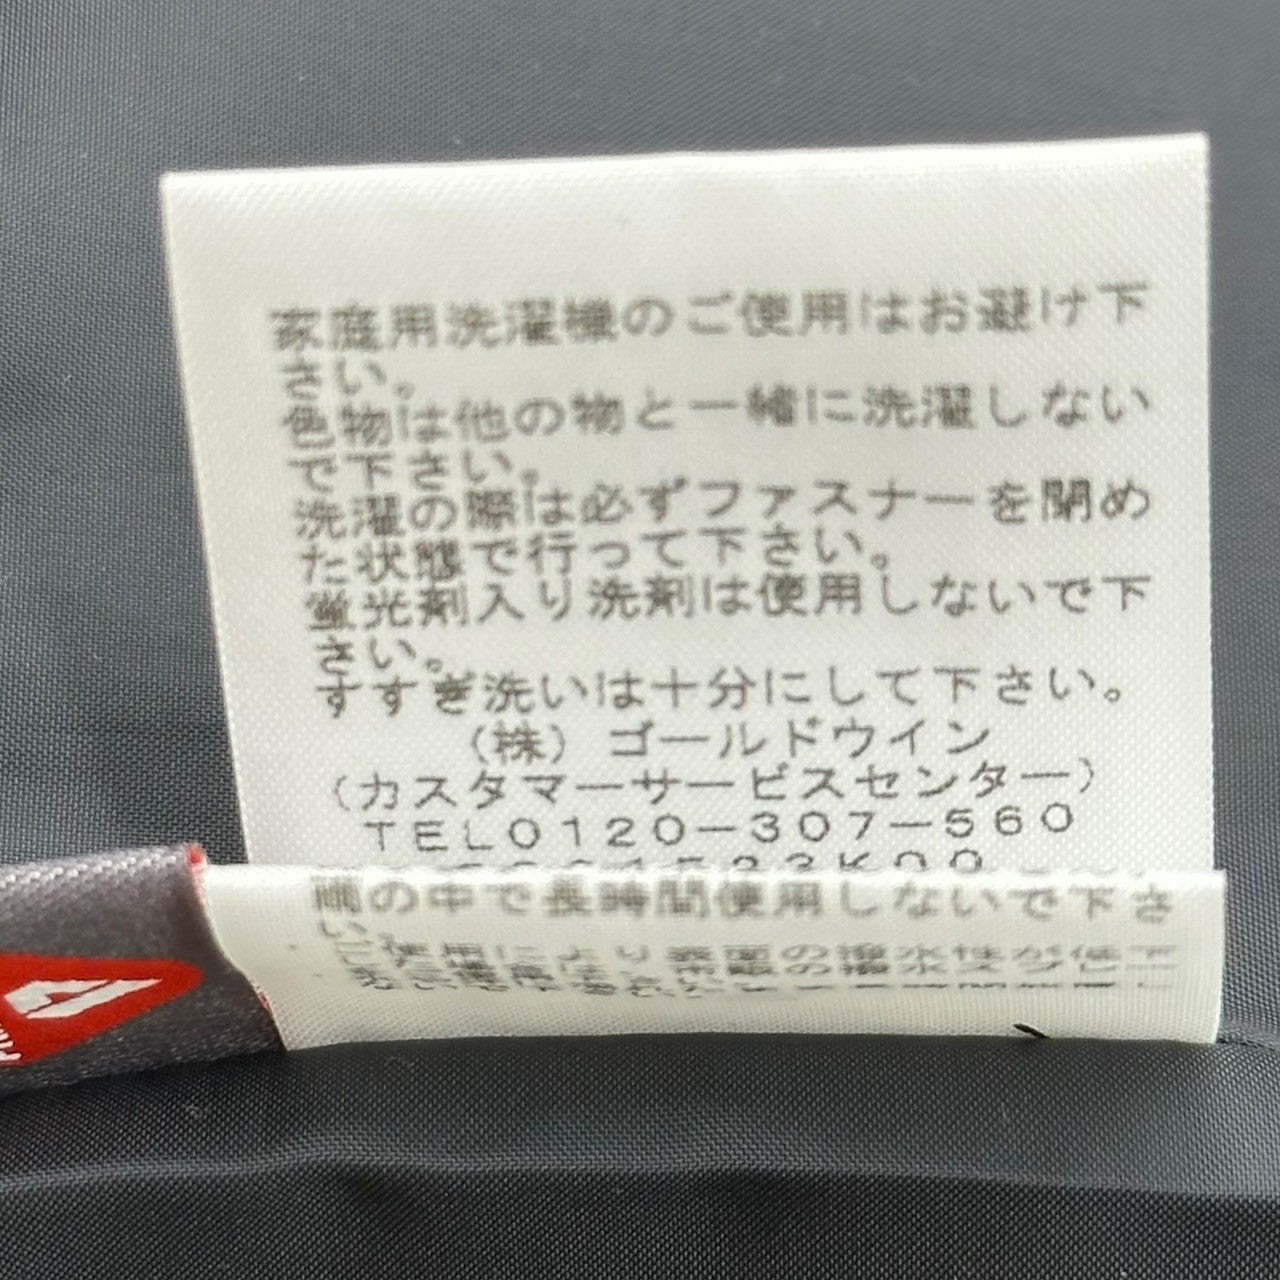 家庭用洗濯機のご使用はお避け下
さい。
色物は他の物と一緒に洗濯しない
で下さい。
洗濯の際は必ずファスナーを閉め
た状態で行って下さい。
蛍光剤入り洗剤は使用しないで下
さい。
すすぎ洗いは十分にして下さい。
(株)ゴールドウイン
(カスタマーサービスセンター)
TEL0120-307-560
雨の中で長時間使用しないで下さ
い。